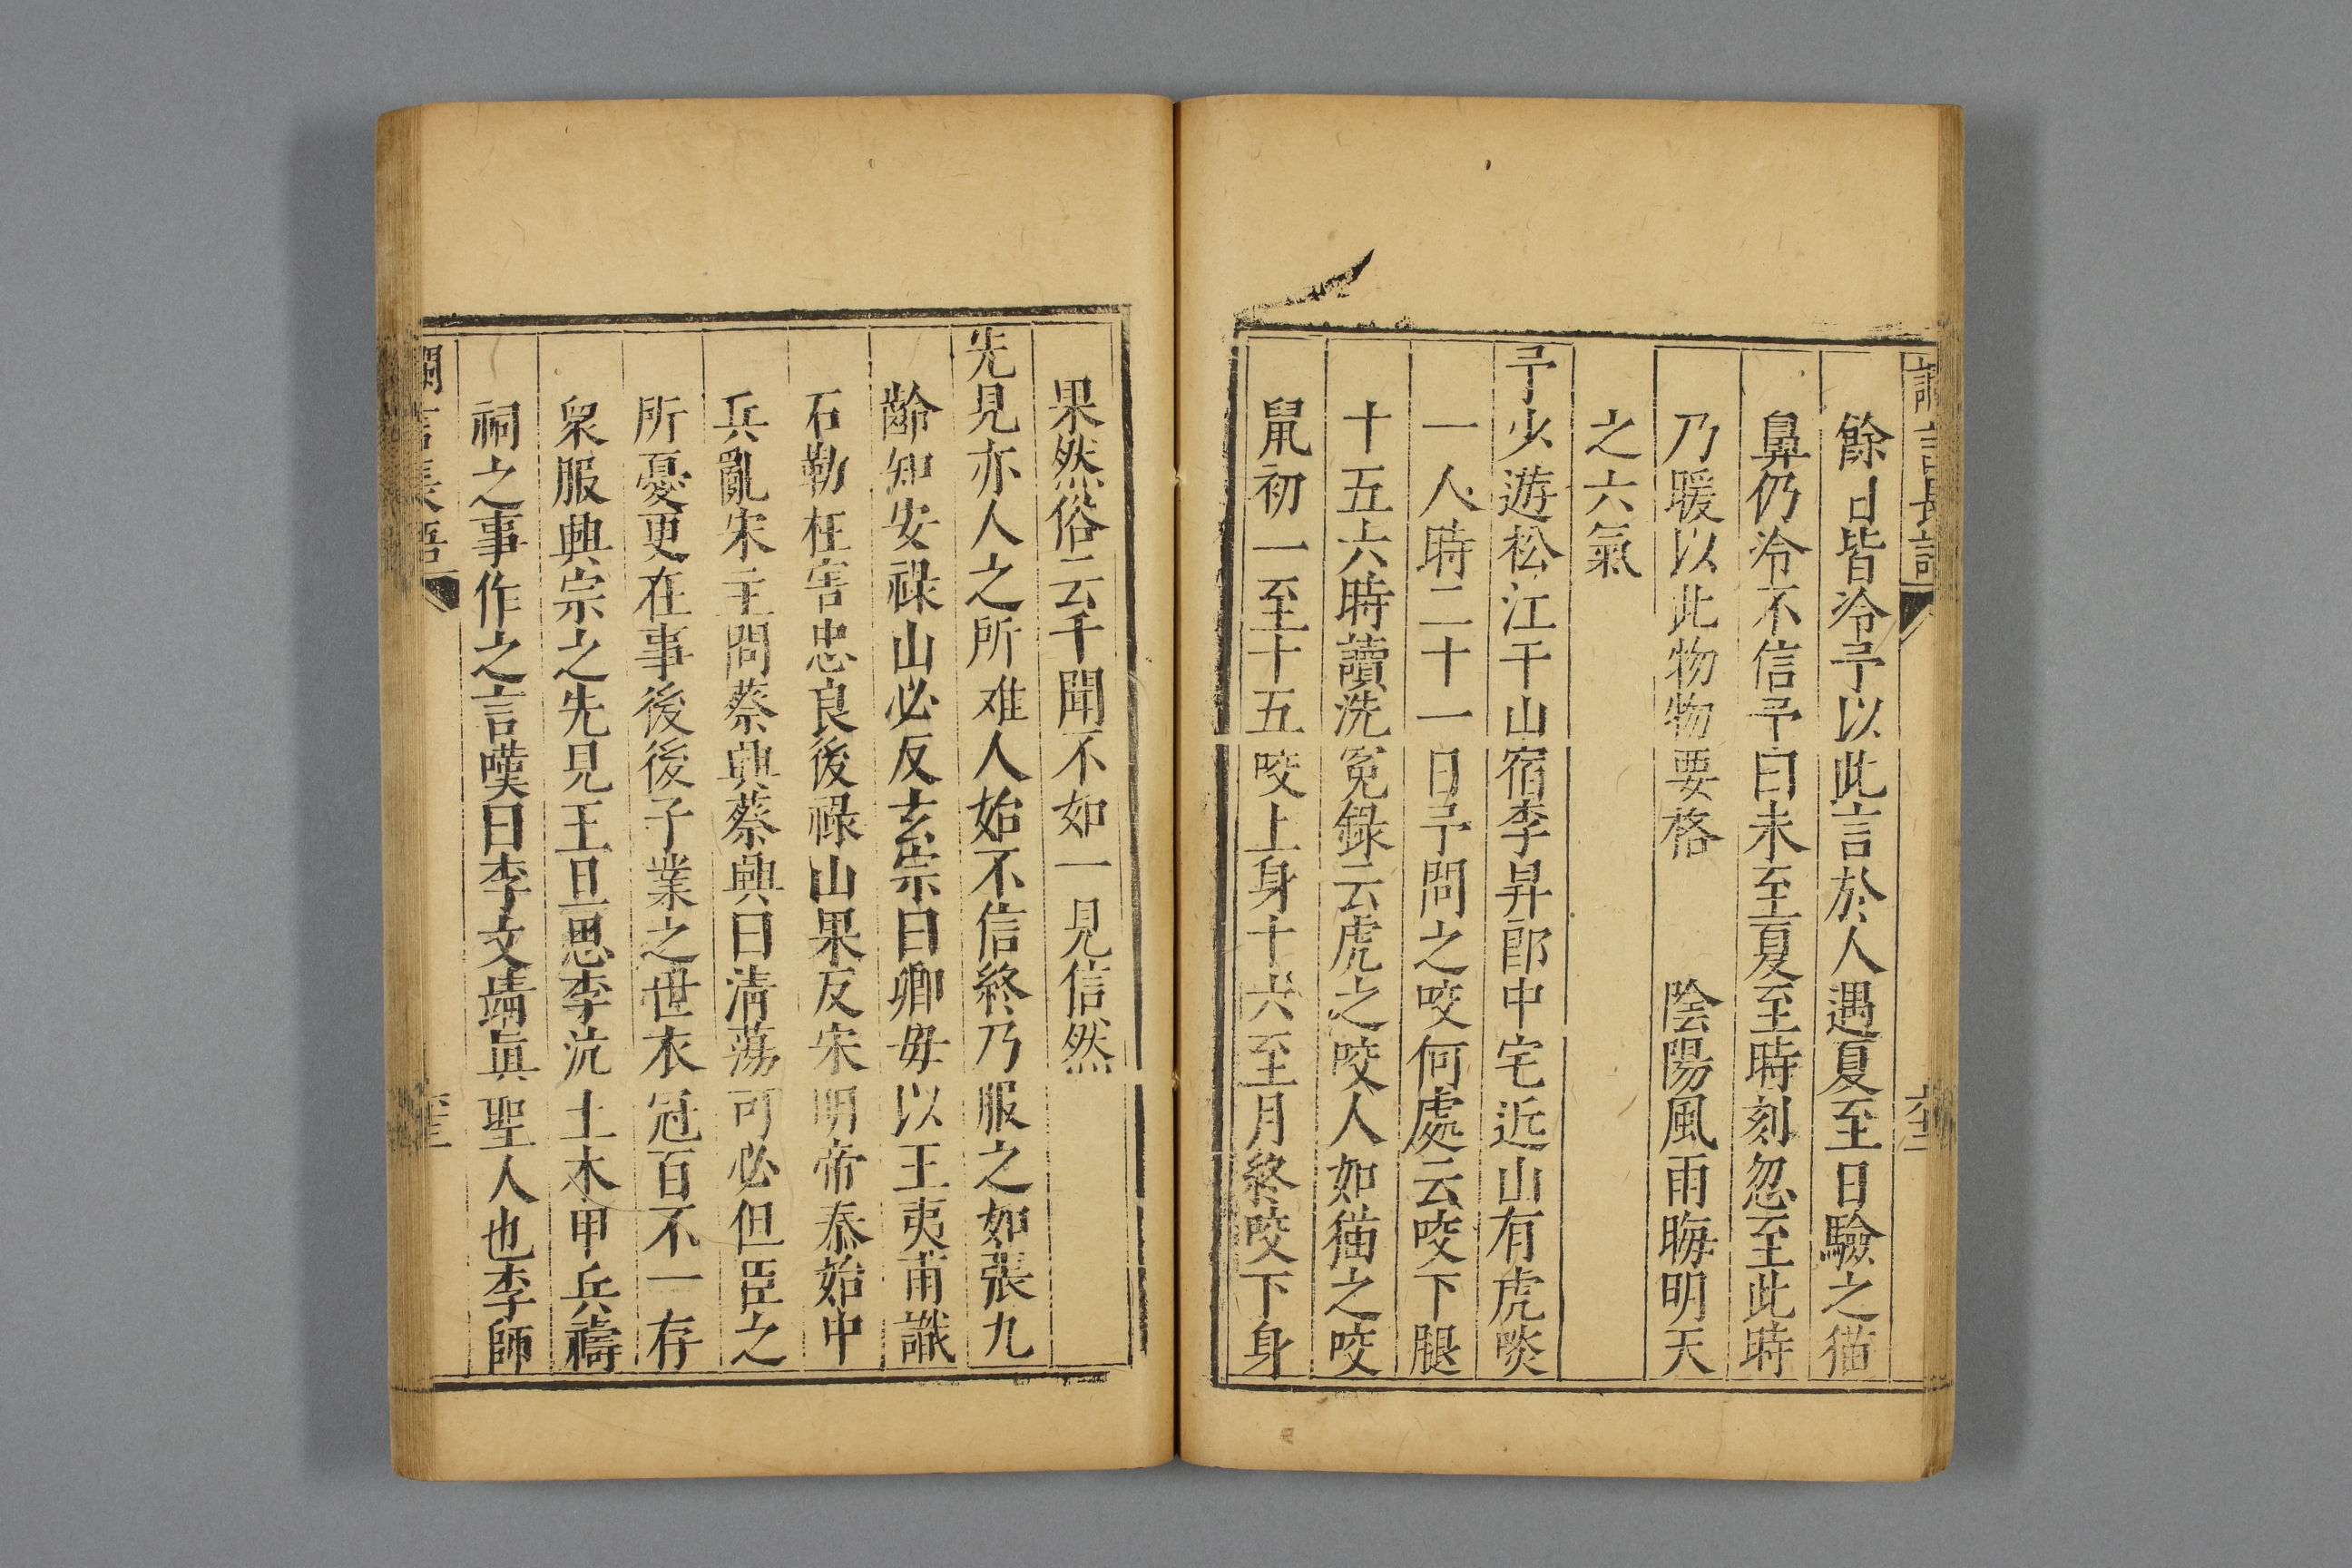 餘日皆冷予以此言於人遇夏至日驗之猫
鼻仍冷不信予曰未至夏至時刻忽至此時
乃暖以此物物要格　　陰陽風雨晦明天
之六氣
予少遊松江干山宿李昇郎中宅近山有虎啖
一人時二十一日予問之咬何處云咬下腿
十五六時讀洗冤錄云虎之咬人如猫之咬
鼠初一至十五咬上身十六至月終咬下身
果然俗云千聞不如一見信然
先見亦人之所难人始不信終乃服之如張九
齡知安祿山必反玄宗曰卿毋以王夷甫識
石勒枉害忠良後祿山果反宋明帝泰始中
兵亂宋主問蔡興蔡興曰清蕩可必但臣之
所憂更在事後後子業之世衣冠百不一存
衆服興宗之先見王旦思李沆土木甲兵禱
祠之事作之言嘆曰李文靖眞聖人也李師